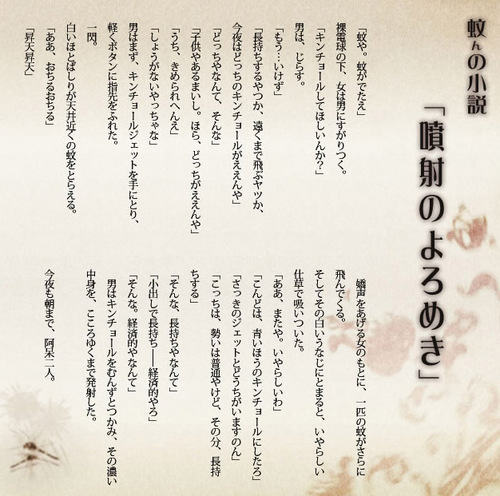 蚊ㇴの小説
「噴射のよろめき」
「蚊や。蚊がでたえ」
裸電球の下、女は男にすがりつく。
「キンチョールしてほしいんか?」
男は、じらす。
「もう…いけず」
「長持ちするやつか、遠くまで飛ぶヤツか、
今夜はどっちのキンチョールがええんや」
「どっちやなんて、そんな」
「子供やあるまいし。ほら、どっちがええんや」
「うち、きめられへんえ」
「しょうがないやっちゃな」
男はまず、キンチョールジェットを手にとり、
軽くボタンに指先をふれた。
一閃。
白いほとばしりが天井近くの蚊をとらえる。
「ああ、おちるおちる」
「昇天昇天」
嬌声をあげる女のもとに、一匹の蚊がさらに
飛んでくる。
そしてその白いうなじにとまると、いやらしい
仕草で吸いついた。
「ああ、またや。いやらしいわ」
「こんどは、青いほうのキンチョールにしたろ」
「さっきのジェットとどうちがいますのん」
「こっちは、勢いは普通やけど、その分、長持
ちする」
「そんな、長持ちやなんて」
「小出しで長持ち──経済的やろ」
「そんな。経済的やなんて」
男はキンチョールをむんずとつかみ、その濃い
中身を、こころゆくまで発射した。
今夜も朝まで、阿呆二人。